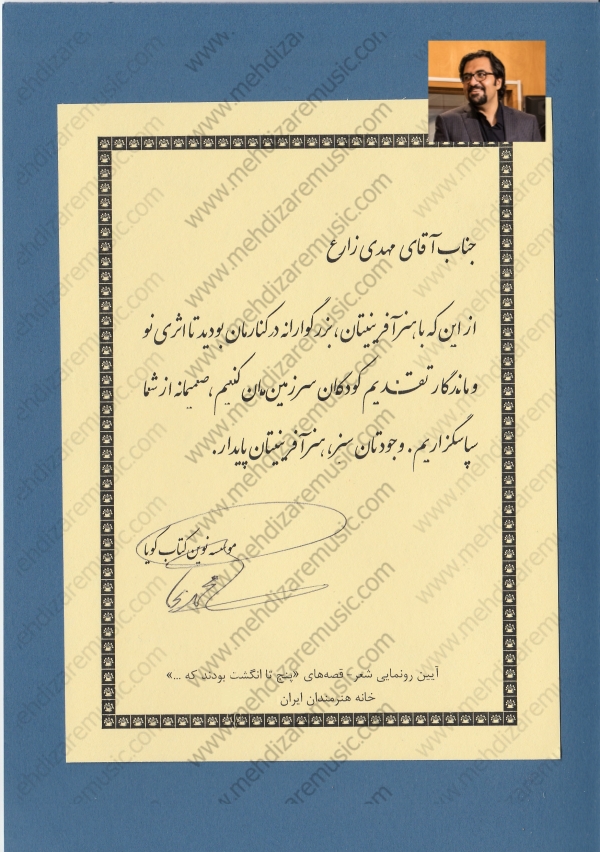 جناب آقای مهدی زارع
از این که با هنرآفرینیتان، بزرگوارانه در کنارمان بودید تا اثری نو
و ماندگار تقدیم کودکان سرزمین‌مان کنیم، صمیمانه از شما
سپاسگزاریم. وجودتان سبز، هنرآفرینیتان پایدار.
موسسه نوین کتاب گویا
آیین رونمایی شعر - قصه‌های «پنج تا انگشت بودند که ...»
خانه هنرمندان ایران
www.mehdizaremusic.com